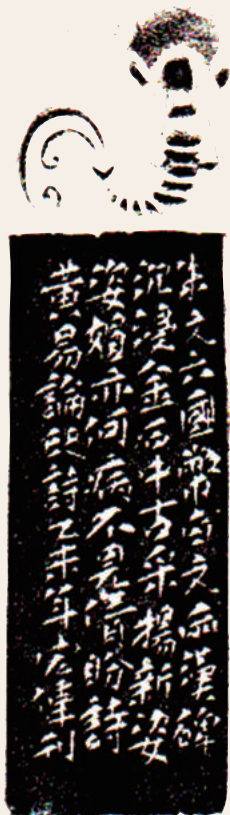 朱文六國幣白文兩漢碑
沉浸金石中古采揚新姿
姿媚亦何病不畏傍盼詩
黃易論印詩乙未年宏偉刊